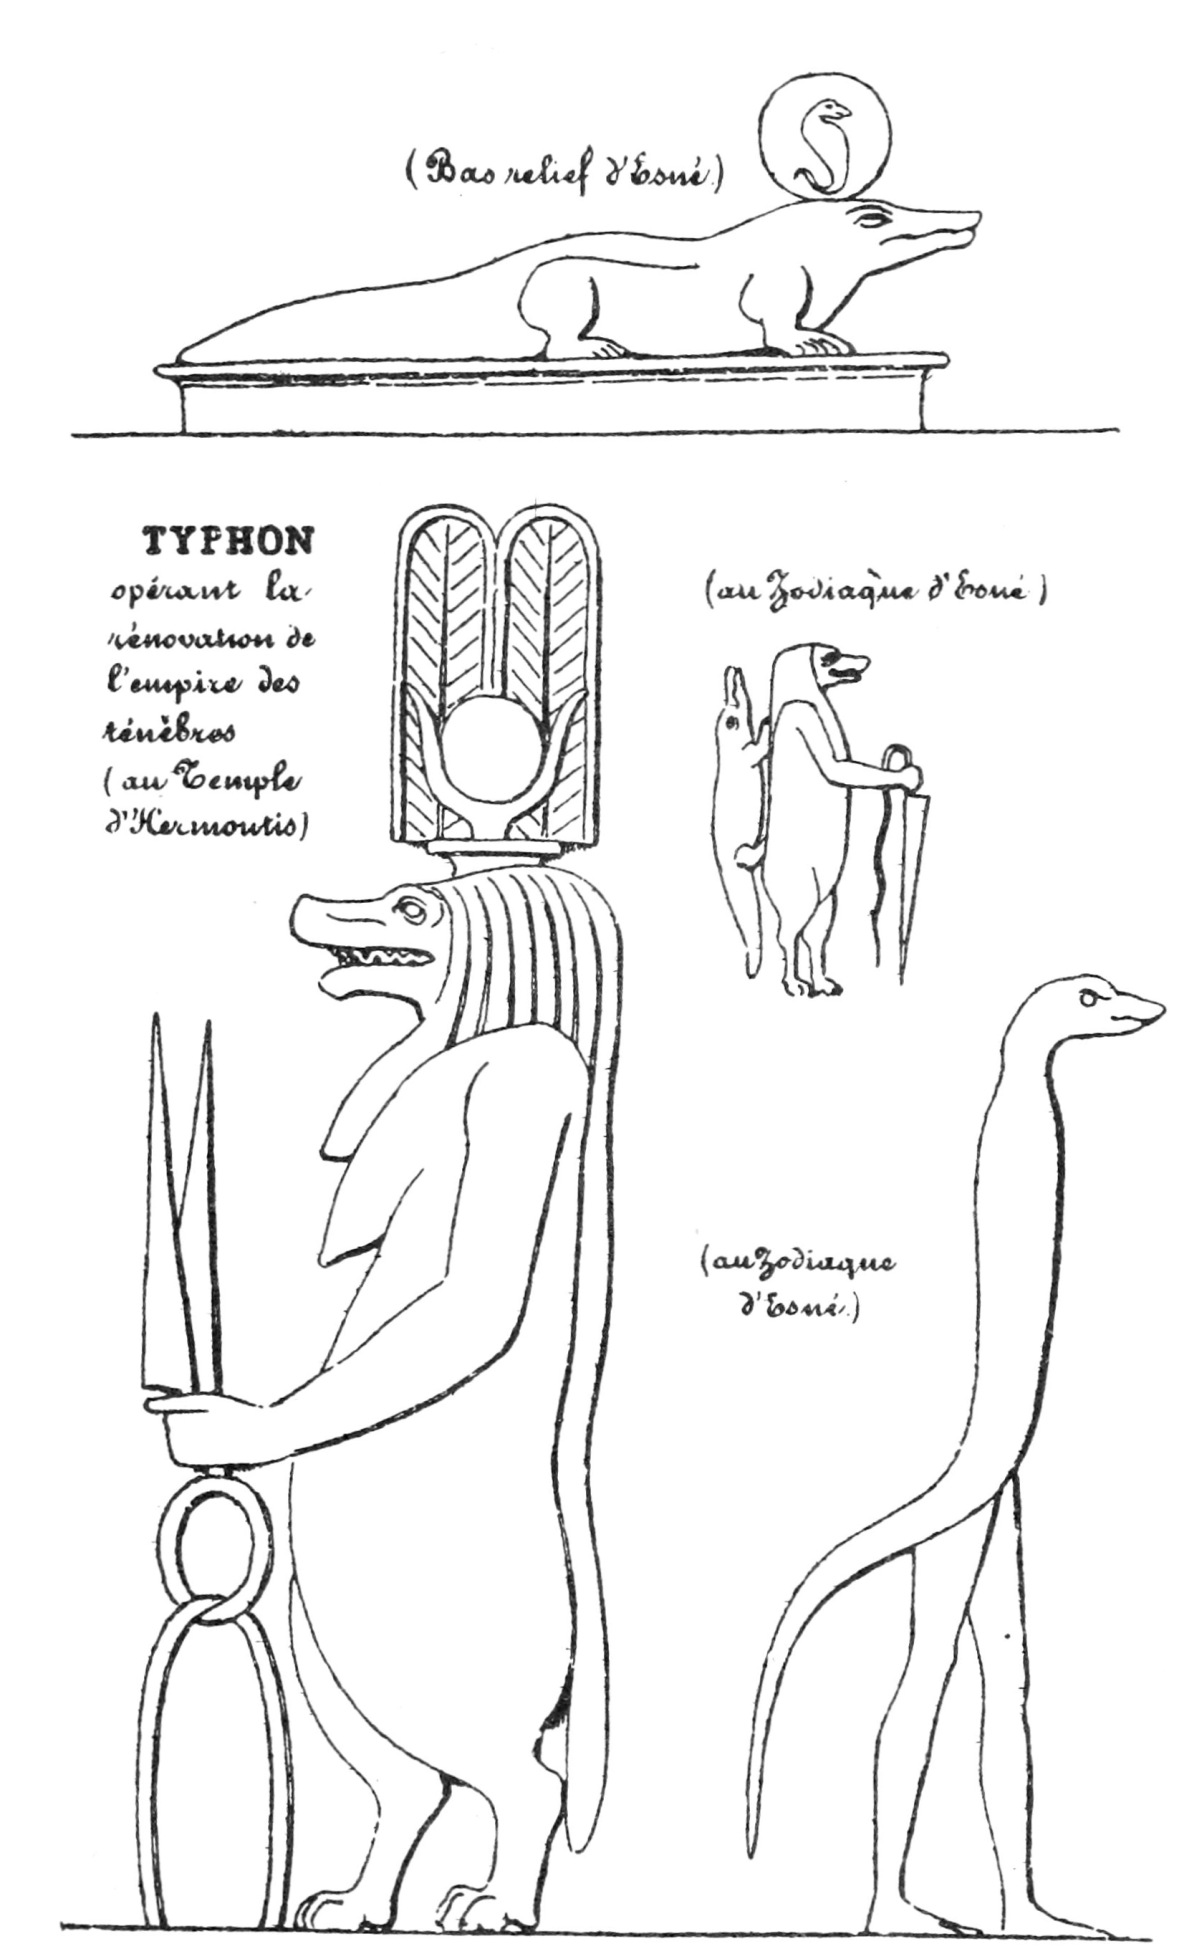 (Bas relief d'Esné)
TYPHON
opérant la
rénovation de
l'empire des
ténèbres
(au Temple
d'Hermontis)
(au Zodiaque d'Esné)
(au Zodiaque
d'Esné.)